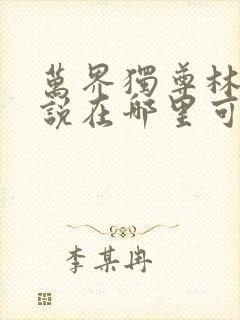 萬界獨尊林
說在哪里可
李某冉